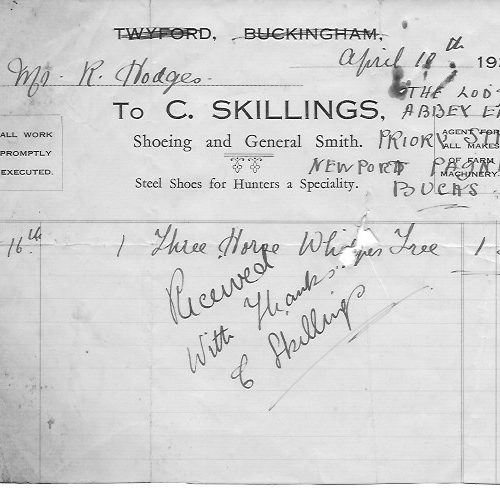 TWYFORD, BUCKINGHAM,
April 18th 19
Mr. R. Hodges.
THE LOD
To C. SKILLINGS, ABBEY
ALL WORK PROMPTLY EXECUTED.
Shoeing and General Smith.
PRIORY ST
AGENT FOR ALL MAKES OF FARM MACHINERY.
NEWPORT PAGN
Steel Shoes for Hunters a Speciality.
BUCKS
16th 1 Three Horse Tree 1
Received
With Thanks
C Skillings